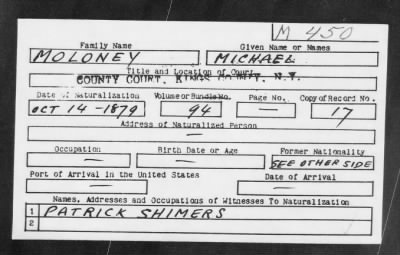 M 450
Family Name Given Name or Names
MOLONEY MICHAEL
Title and Location of Court
COUNTY COURT, KINGS COUNTY, N.Y.
Date of Naturalization Volume or Bundle No. Page No. Copy of Record No.
OCT 14-1879 94 — 17
Address of Naturalized Person
—
Occupation Birth Date or Age Former Nationality
— — SEE OTHER SIDE
Port of Arrival in the United States Date of Arrival
— —
Names, Addresses and Occupations of Witnesses To Naturalization
1 PATRICK SHIMERS
2